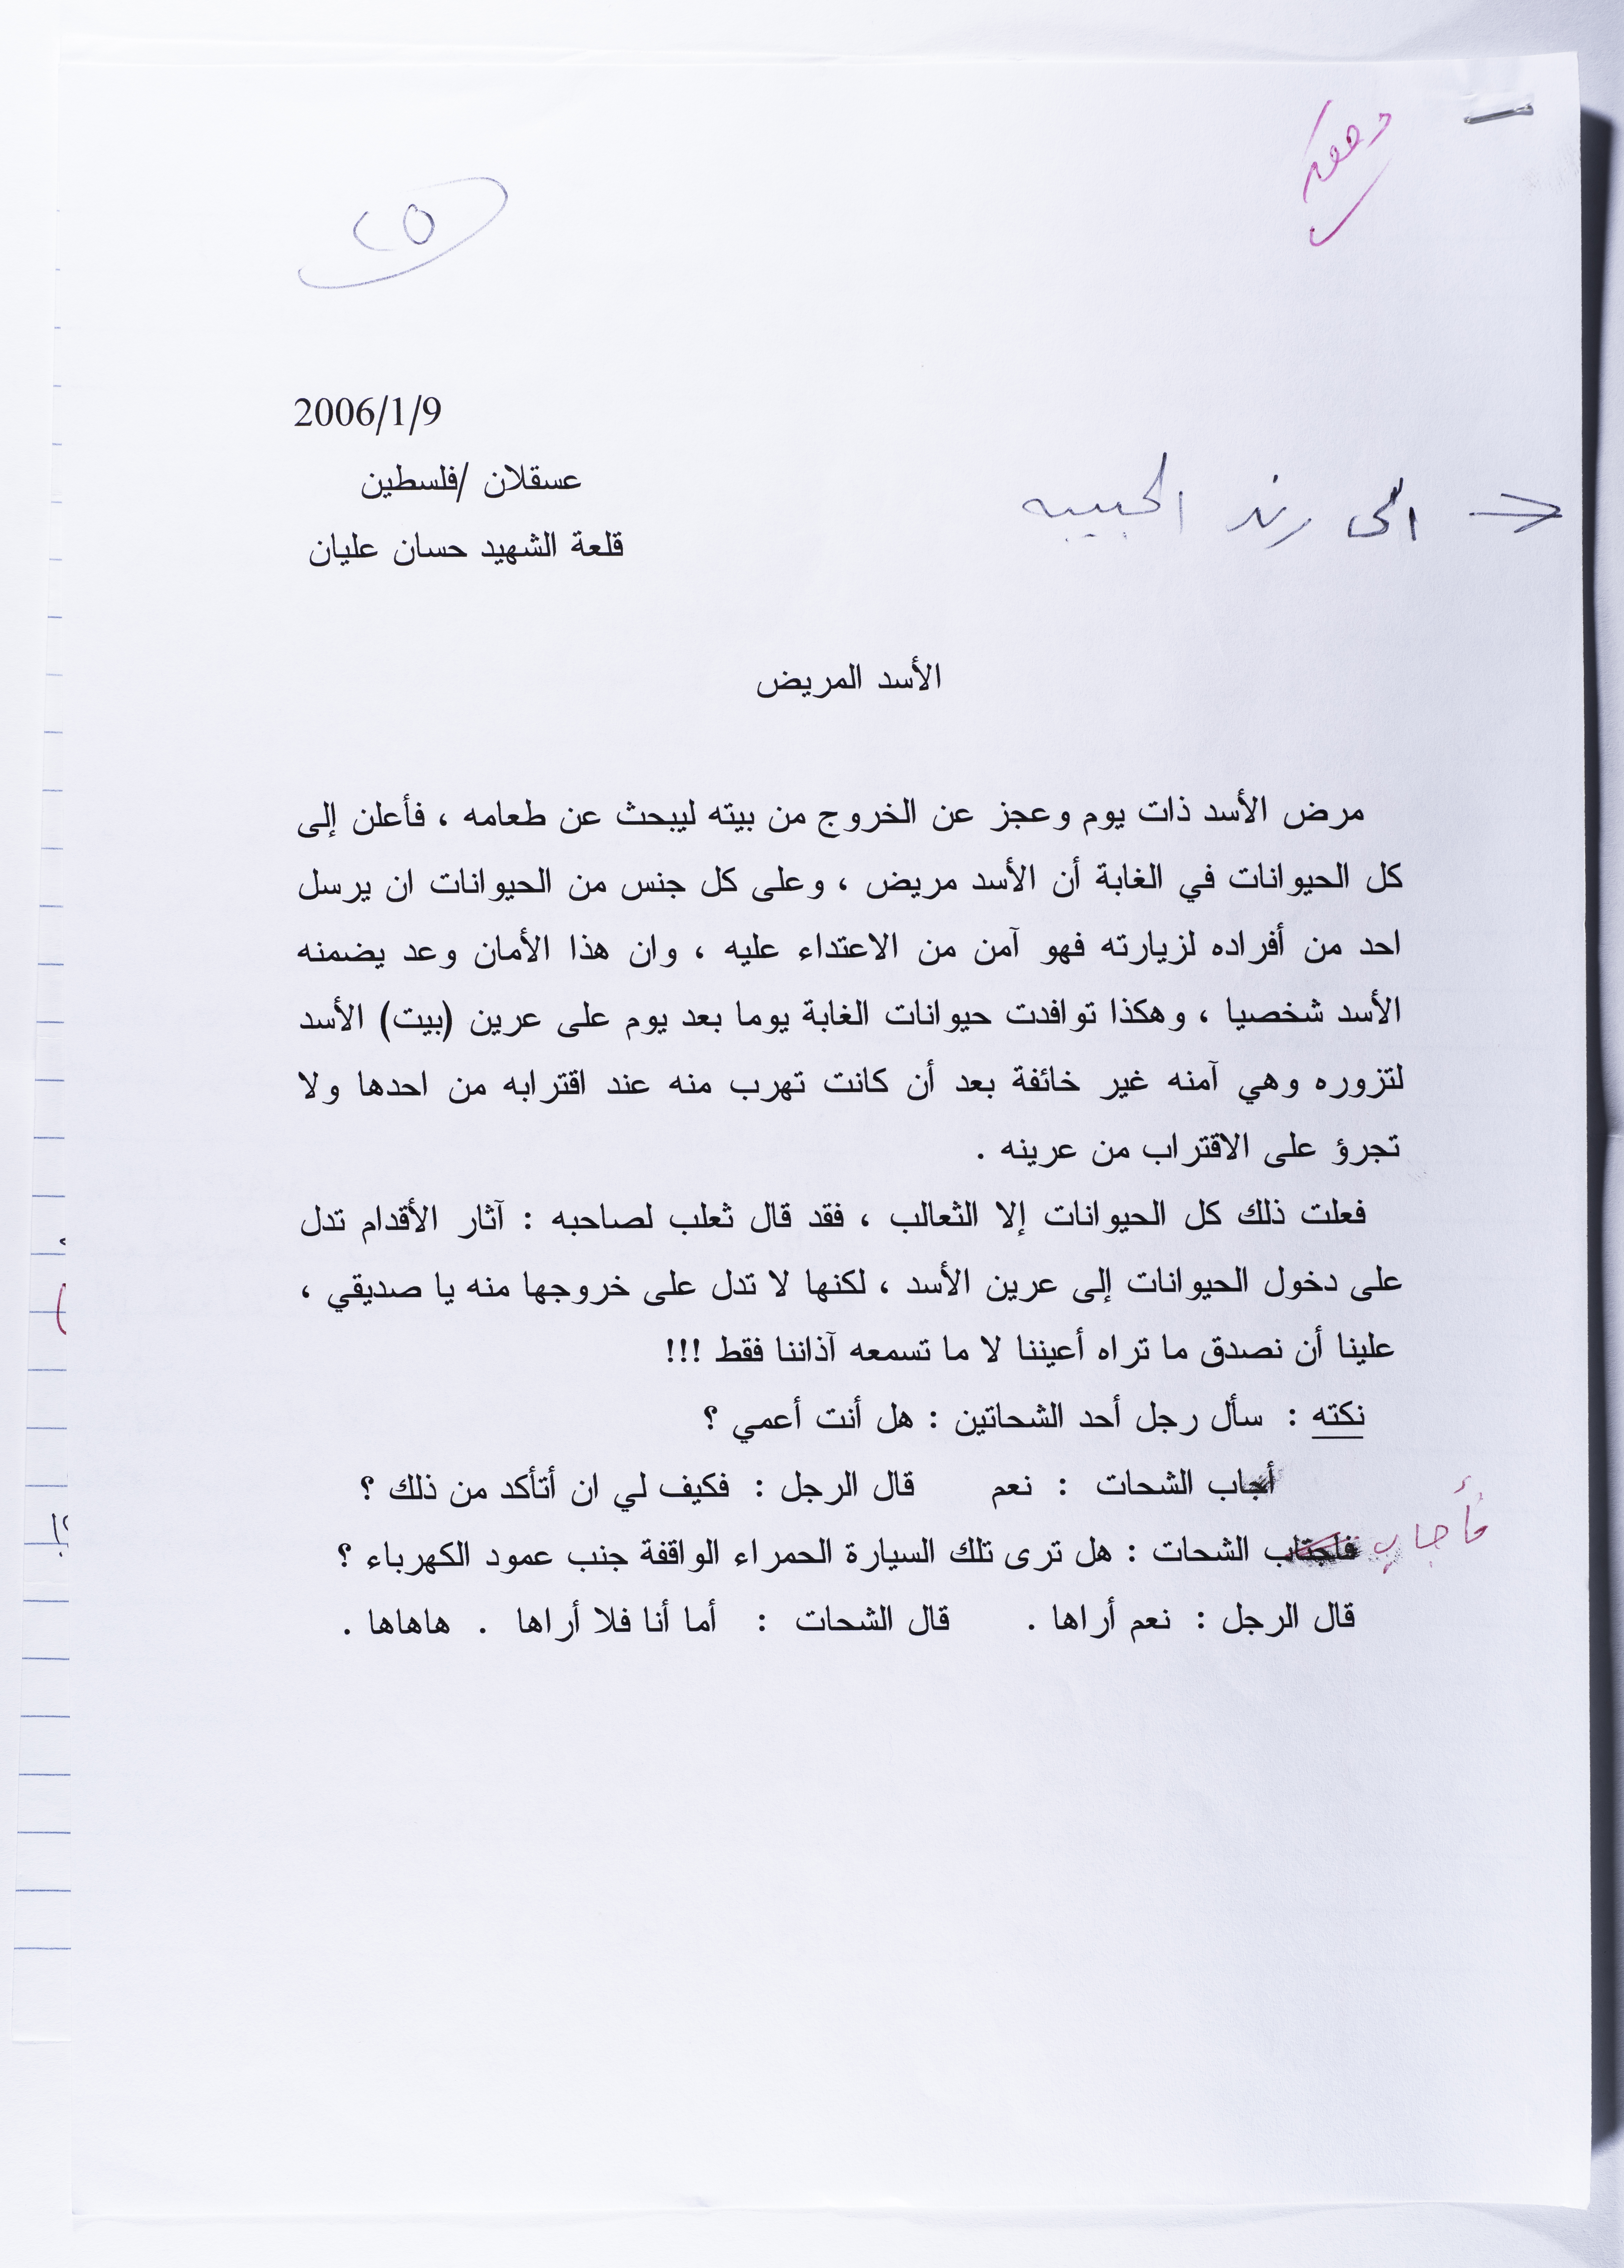 ٢٥
2006/1/9
عسقلان /فلسطين
الى رند الحبيبه
قلعة الشهيد حسان عليان
الأسد المريض
مرض الأسد ذات يوم وعجز عن الخروج من بيته ليبحث عن طعامه ، فأعلن إلى
كل الحيوانات في الغابة أن الأسد مريض ، وعلى كل جنس من الحيوانات ان يرسل
احد من أفراده لزيارته فهو آمن من الاعتداء عليه ، وان هذا الأمان وعد يضمنه
الأسد شخصيا ، وهكذا توافدت حيوانات الغابة يوما بعد يوم على عرين (بيت) الأسد
لتزوره وهي آمنه غير خائفة بعد أن كانت تهرب منه عند اقترابه من احدها ولا
تجرؤ على الاقتراب من عرينه .
فعلت ذلك كل الحيوانات إلا الثعالب ، فقد قال ثعلب لصاحبه : آثار الأقدام تدل
على دخول الحيوانات إلى عرين الأسد ، لكنها لا تدل على خروجها منه يا صديقي ،
علينا أن نصدق ما تراه أعيننا لا ما تسمعه آذاننا فقط !!!
نكته : سأل رجل أحد الشحاتين : هل أنت أعمي ؟
أجاب الشحات : نعم قال الرجل : فكيف لي ان أتأكد من ذلك ؟
فأجاب الشحات : هل ترى تلك السيارة الحمراء الواقفة جنب عمود الكهرباء ؟
قال الرجل : نعم أراها . قال الشحات : أما أنا فلا أراها . هاهاها .